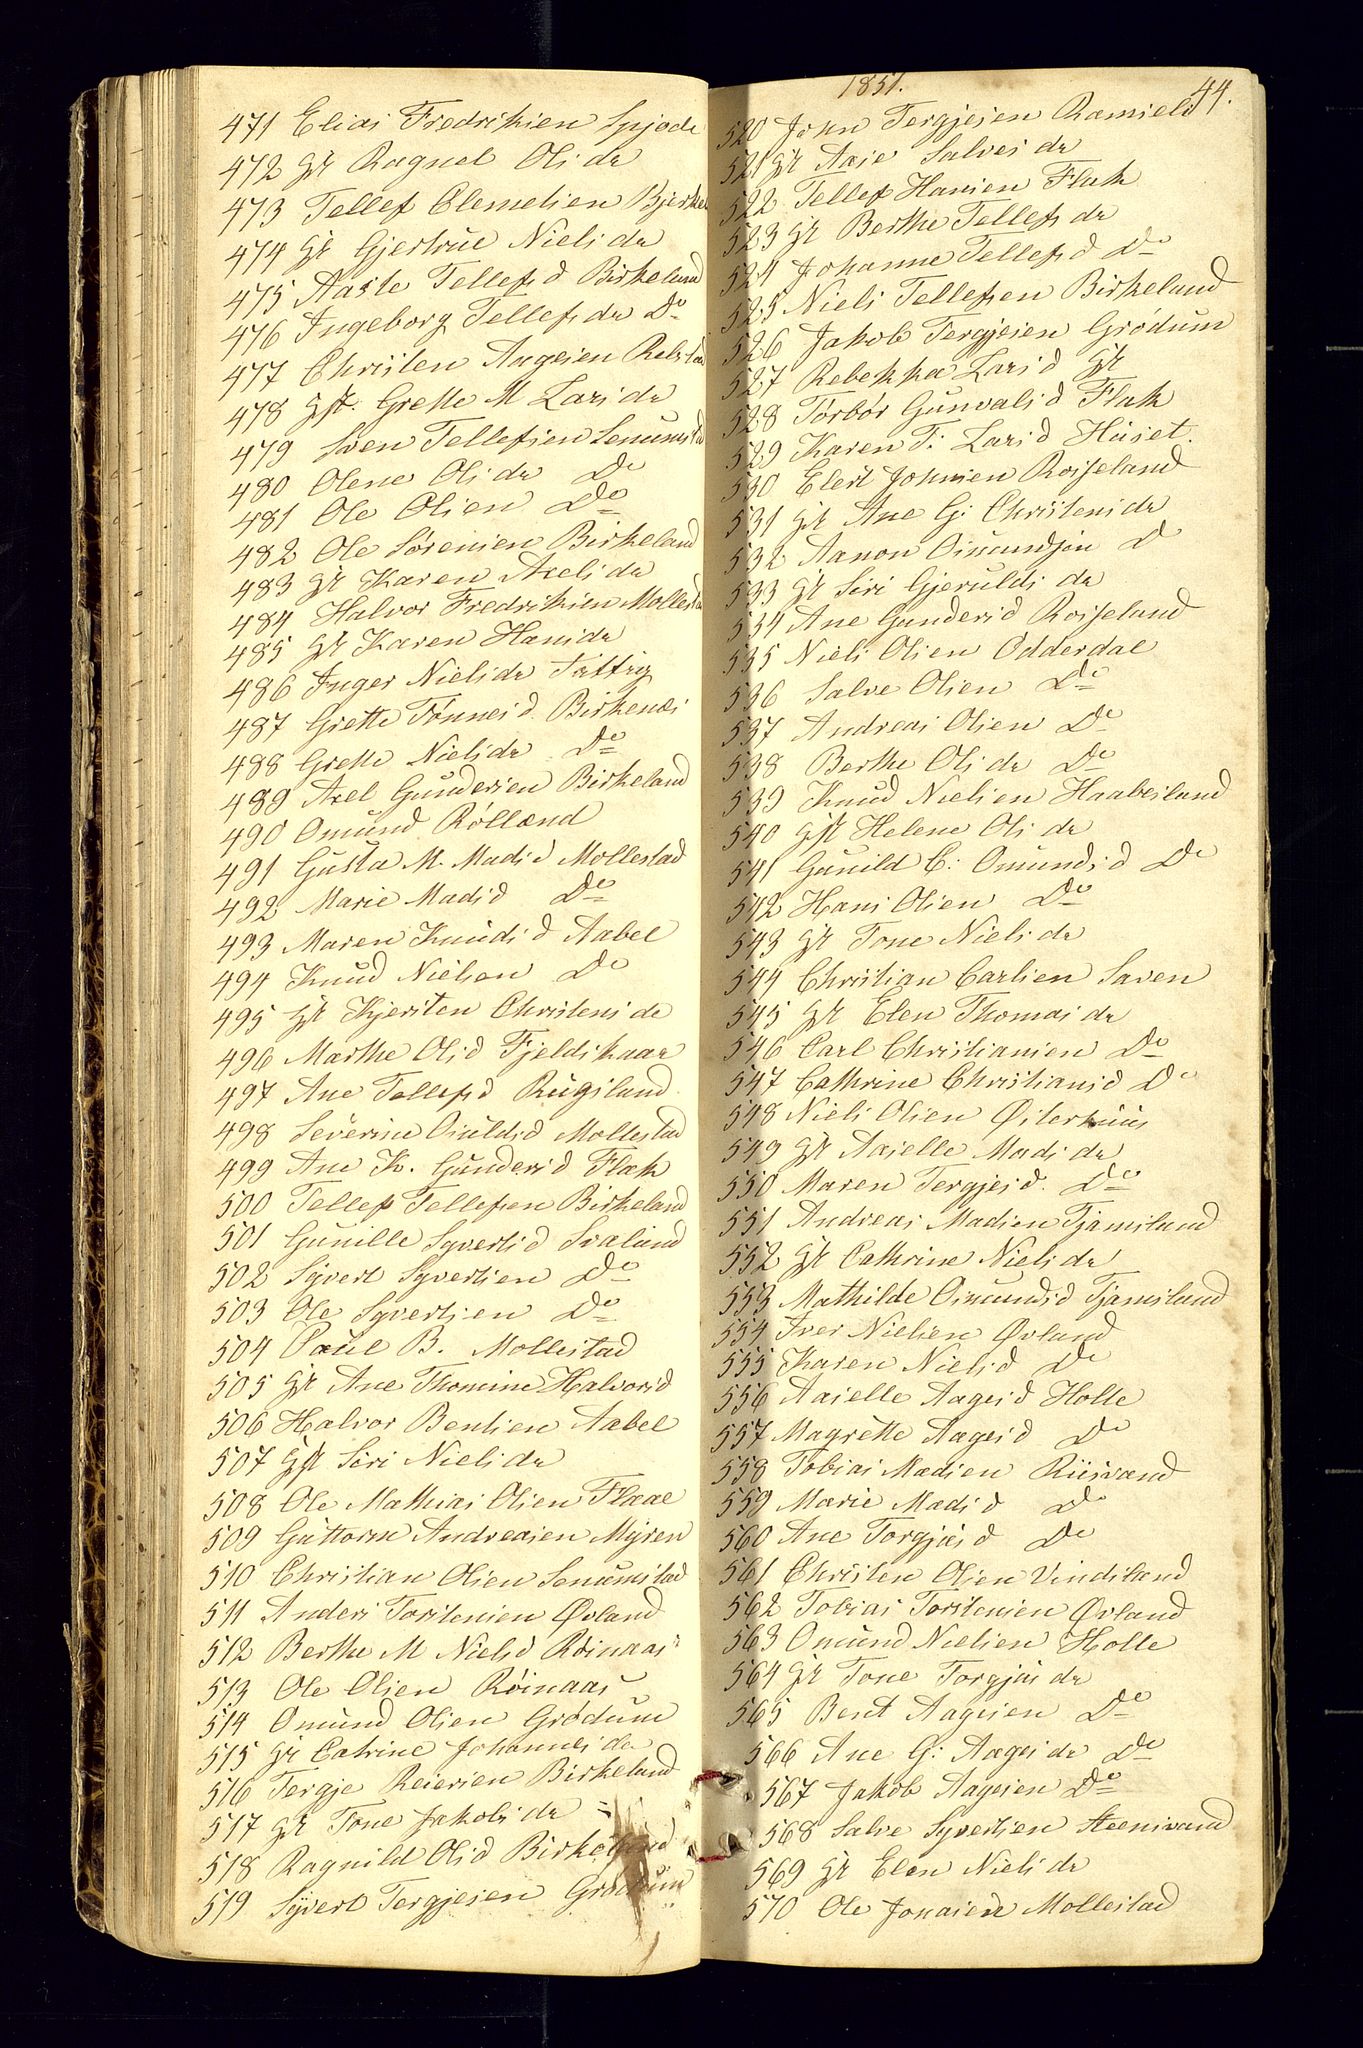 471 Elias Fredriksen Spjode
472 Gst Ragnel Olsdr
473 Tellef Clemetsen Bjerke
474 Gst Gjertrue Nielsdr
475 Aaste Tellefsd Birkeland
476 Ingeborg Tellefsdr Do
477 Christen Aagesen Retsta
478 Gst. Grette M Larsdr
479 Sven Tellefsen Senumstad
480 Olene Olsdr Do
481 Ole Olsen Do
482 Ole Sörensen Birkeland
483 Gst Karen Axelsdr
484 Halvor Fredriksen Mollesta
485 Gst Karen Hansdr
486 Inger Nielsdr Sættrig
487 Grette Tönnesd. Birkenæs
488 Grette Nielsdr Do
489 Axel Gundersen Birkeland
490 Omund Rölland
491 Gusta M. Madsd Mollestad
492 Marie Madsd Do
493 Maren Knudsd Aabel
494 Knud Nielsen Do
495 Gst Kjersten Christensdr
496 Marthe Olsd Fjeldskaar
497 Ane Tellefsd Rugsland
498 Severine Osuldsd Mollestad
499 Ane K. Gundersd Flak
500 Tellef Tellefsen Birkeland
501 Gunille Syvertsd Svaland
502 Syvert Syvertsen Do
503 Ole Syvertsen Do
504 Paul B. Mollestad
505 Gst Ane Thomine Halvorsd
506 Halvor Bentsen Aabel
507 Gst Siri Nielsdr
508 Ole Mathias Olsen Flaae
509 Guttorm Andreasen Myren
510 Christian Olsen Senumstad
511 Anders Torstensen Øvland
512 Berthe M Nielsd Röinaas
513 Ole Olsen Röinaas
514 Omund Olsen Grödum
515 Gst Catrine Johannesdr
516 Tergje Reiersen Birkeland
517 Gst Tone Jakobsdr =
518 Ragnild Olsd Birkeland
519 Syvert Tergjesen Grödum
1851. 44.
520 John Tergjesen Ramsels
521 Gst Aase Salvesdr
522 Tellef Hansen Flak
523 Gst Berthe Tellefsdr
524 Johanne Tellefsd Do
525 Niels Tellefsen Birkeland
526 Jakob Tergjesen Grödum
527 Rebekka Larsd Gst
528 Törbör Gunvalsd Flak
529 Karen T: Larsd Huset.
530 Elert Johnsen Roiseland
531 Gst Ane G: Christensdr
532 Aanon Osmundsen D
533 Gst Siri Gjeruldsdr
534 Ane Gundersd Roiseland
535 Niels Olsen Odderdal
536 Salve Olsen Do
537 Andreas Olsen Do
538 Berthe Olsdr Do
539 Knud Nielsen Haabesland
540 Gst Helene Olsdr
541 Gunild C: Omundsd Do
542 Hans Olsen Do
543 Gst Tone Nielsdr
544 Christian Carlsen Saven
545 Gst Elen Thomasdr
546 Carl Christiansen Do
547 Cathrine Christiansd Do
548 Niels Olsen Østerhuus
549 Gst Asielle Madsdr
550 Maren Tergjesd. Do
551 Andreas Madsen Tjamsland
552 Gst Cathrine Nielsdr
553 Mathilde Osmundsd Tjamsland
554 Iver Nielsen Øvland
555 Karen Nielsd Do
556 Asielle Aagesd Holte
557 Magrethe Aagesd Do
558 Tobias Madsen Riisvand
559 Marie Madsd Do
560 Ane Torgjusd Do
561 Christen Olsen Vindsland
562 Tobias Torstensen Øvland
563 Omund Nielsen Holte
564 Gst Tone Torgjusdr
565 Bent Aagesen Do
566 Ane G: Aagesdr Do
567 Jakob Aagesen Do
568 Salve Syvertsen Steensvand
569 Gst Elen Nielsdr
570 Ole Jonasen Mollestad